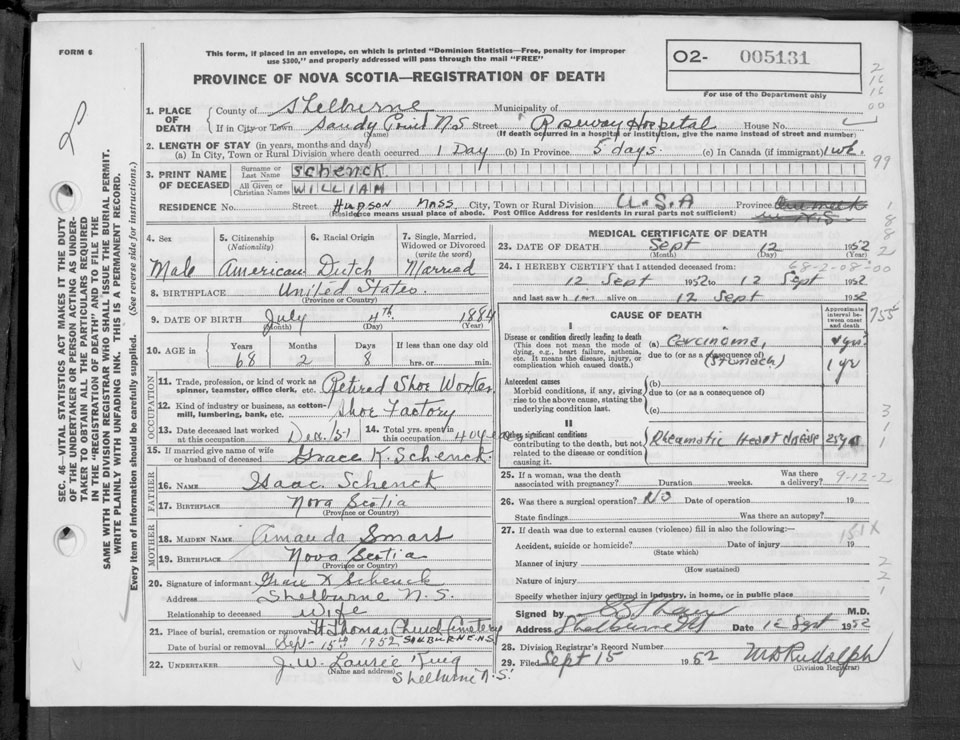 FORM 6
This form, if placed in an envelope, on which is printed "Dominion Statistics—Free, penalty for improper
use $300," and properly addressed will pass through the mail "FREE"
PROVINCE OF NOVA SCOTIA—REGISTRATION OF DEATH
O2- 005131
For use of the Department only
SEC. 46—VITAL STATISTICS ACT MAKES IT THE DUTY
OF THE UNDERTAKER OR PERSON ACTING AS UNDER-
TAKER TO OBTAIN ALL THE PARTICULARS REQUIRED
IN THE "REGISTRATION OF DEATH" AND TO FILE THE
SAME WITH THE DIVISION REGISTRAR WHO SHALL ISSUE THE BURIAL PERMIT.
WRITE PLAINLY WITH UNFADING INK. THIS IS A PERMANENT RECORD.
Every item of information should be carefully supplied. (See reverse side for instructions.)
1. PLACE OF DEATH
County of Shelburne Municipality of
If in City or Town Sandy Point N.S Street Roseway Hospital House No.
(Name) (If death occurred in a hospital or institution, give the name instead of street and number)
2. LENGTH OF STAY (in years, months and days)
(a) In City, Town or Rural Division where death occurred 1 Day (b) In Province 5 days. (c) In Canada (if immigrant) 1 wk.
3. PRINT NAME OF DECEASED
Surname or Last Name Schenck
All Given or Christian Names WILLIAM
RESIDENCE No. Street HUDSON MASS City, Town or Rural Division U.S.A Province
(Residence means usual place of abode. Post Office Address for residents in rural parts not sufficient)
4. Sex
Male
5. Citizenship
(Nationality)
American
6. Racial Origin
Dutch
7. Single, Married, Widowed or Divorced
(write the word)
Married
8. BIRTHPLACE United States.
(Province or Country)
9. DATE OF BIRTH July 4th 1884
(Month) (Day) (Year)
10. AGE in Years Months Days If less than one day old
68 2 8 hrs. or min.
OCCUPATION
11. Trade, profession, or kind of work as spinner, teamster, office clerk, etc. Retired Shoe Worker
12. Kind of industry or business, as cotton-mill, lumbering, bank, etc. Shoe Factory
13. Date deceased last worked at this occupation Dec. 151
14. Total yrs. spent in this occupation 40 years
15. If married give name of wife or husband of deceased Grace K. Schenck.
FATHER
16. NAME Isaac Schenck
17. BIRTHPLACE Nova Scotia
(Province or Country)
MOTHER
18. MAIDEN NAME Amanda Smart
19. BIRTHPLACE Nova Scotia
(Province or Country)
20. Signature of informant Grace K Schenck
Address Shelburne N.S.
Relationship to deceased Wife
21. Place of burial, cremation or removal St Thomas Church Cemetery
Date of burial or removal Sep- 15th 1952 SHELBURNE N.S.
22. UNDERTAKER J.W. Laurie King
(Name and address) Shelburne N.S.
MEDICAL CERTIFICATE OF DEATH
23. DATE OF DEATH Sept 12 1952
(Month) (Day) (Year)
68-2-08-00
24. I HEREBY CERTIFY that I attended deceased from:
12 Sept 1952 to 12 Sept 1952
and last saw him alive on 12 Sept 1952
CAUSE OF DEATH
Approximate interval between onset and death
I
Disease or condition directly leading to death
(This does not mean the mode of dying, e.g., heart failure, asthenia, etc. It means the disease, injury, or complication which caused death.)
(a) Carcinoma,
due to (or as a consequence of) (Stomach) 1 yr
Antecedent causes
Morbid conditions, if any, giving rise to the above cause, stating the underlying condition last.
(b)
due to (or as a consequence of)
(c)
II
Other significant conditions
contributing to the death, but not related to the disease or condition causing it.
Rheumatic Heart disease 25 yrs
25. If a woman, was the death associated with pregnancy? Duration weeks. Was there a delivery?
9-12-2
26. Was there a surgical operation? NO Date of operation 19
State findings Was there an autopsy?
27. If death was due to external causes (violence) fill in also the following:—
151X
Accident, suicide or homicide? Date of injury 19
(State which)
Manner of injury
(How sustained)
Nature of injury
Specify whether injury occurred in industry, in home, or in public place
Signed by M.D.
Address Shelburne NS Date 12 Sept 1952
28. Division Registrar's Record Number
29. Filed Sept 15 1952 Rudolph
(Division Registrar)
2
16
16
00
99
1
8
8
2
755
3
1
1
2
2
1